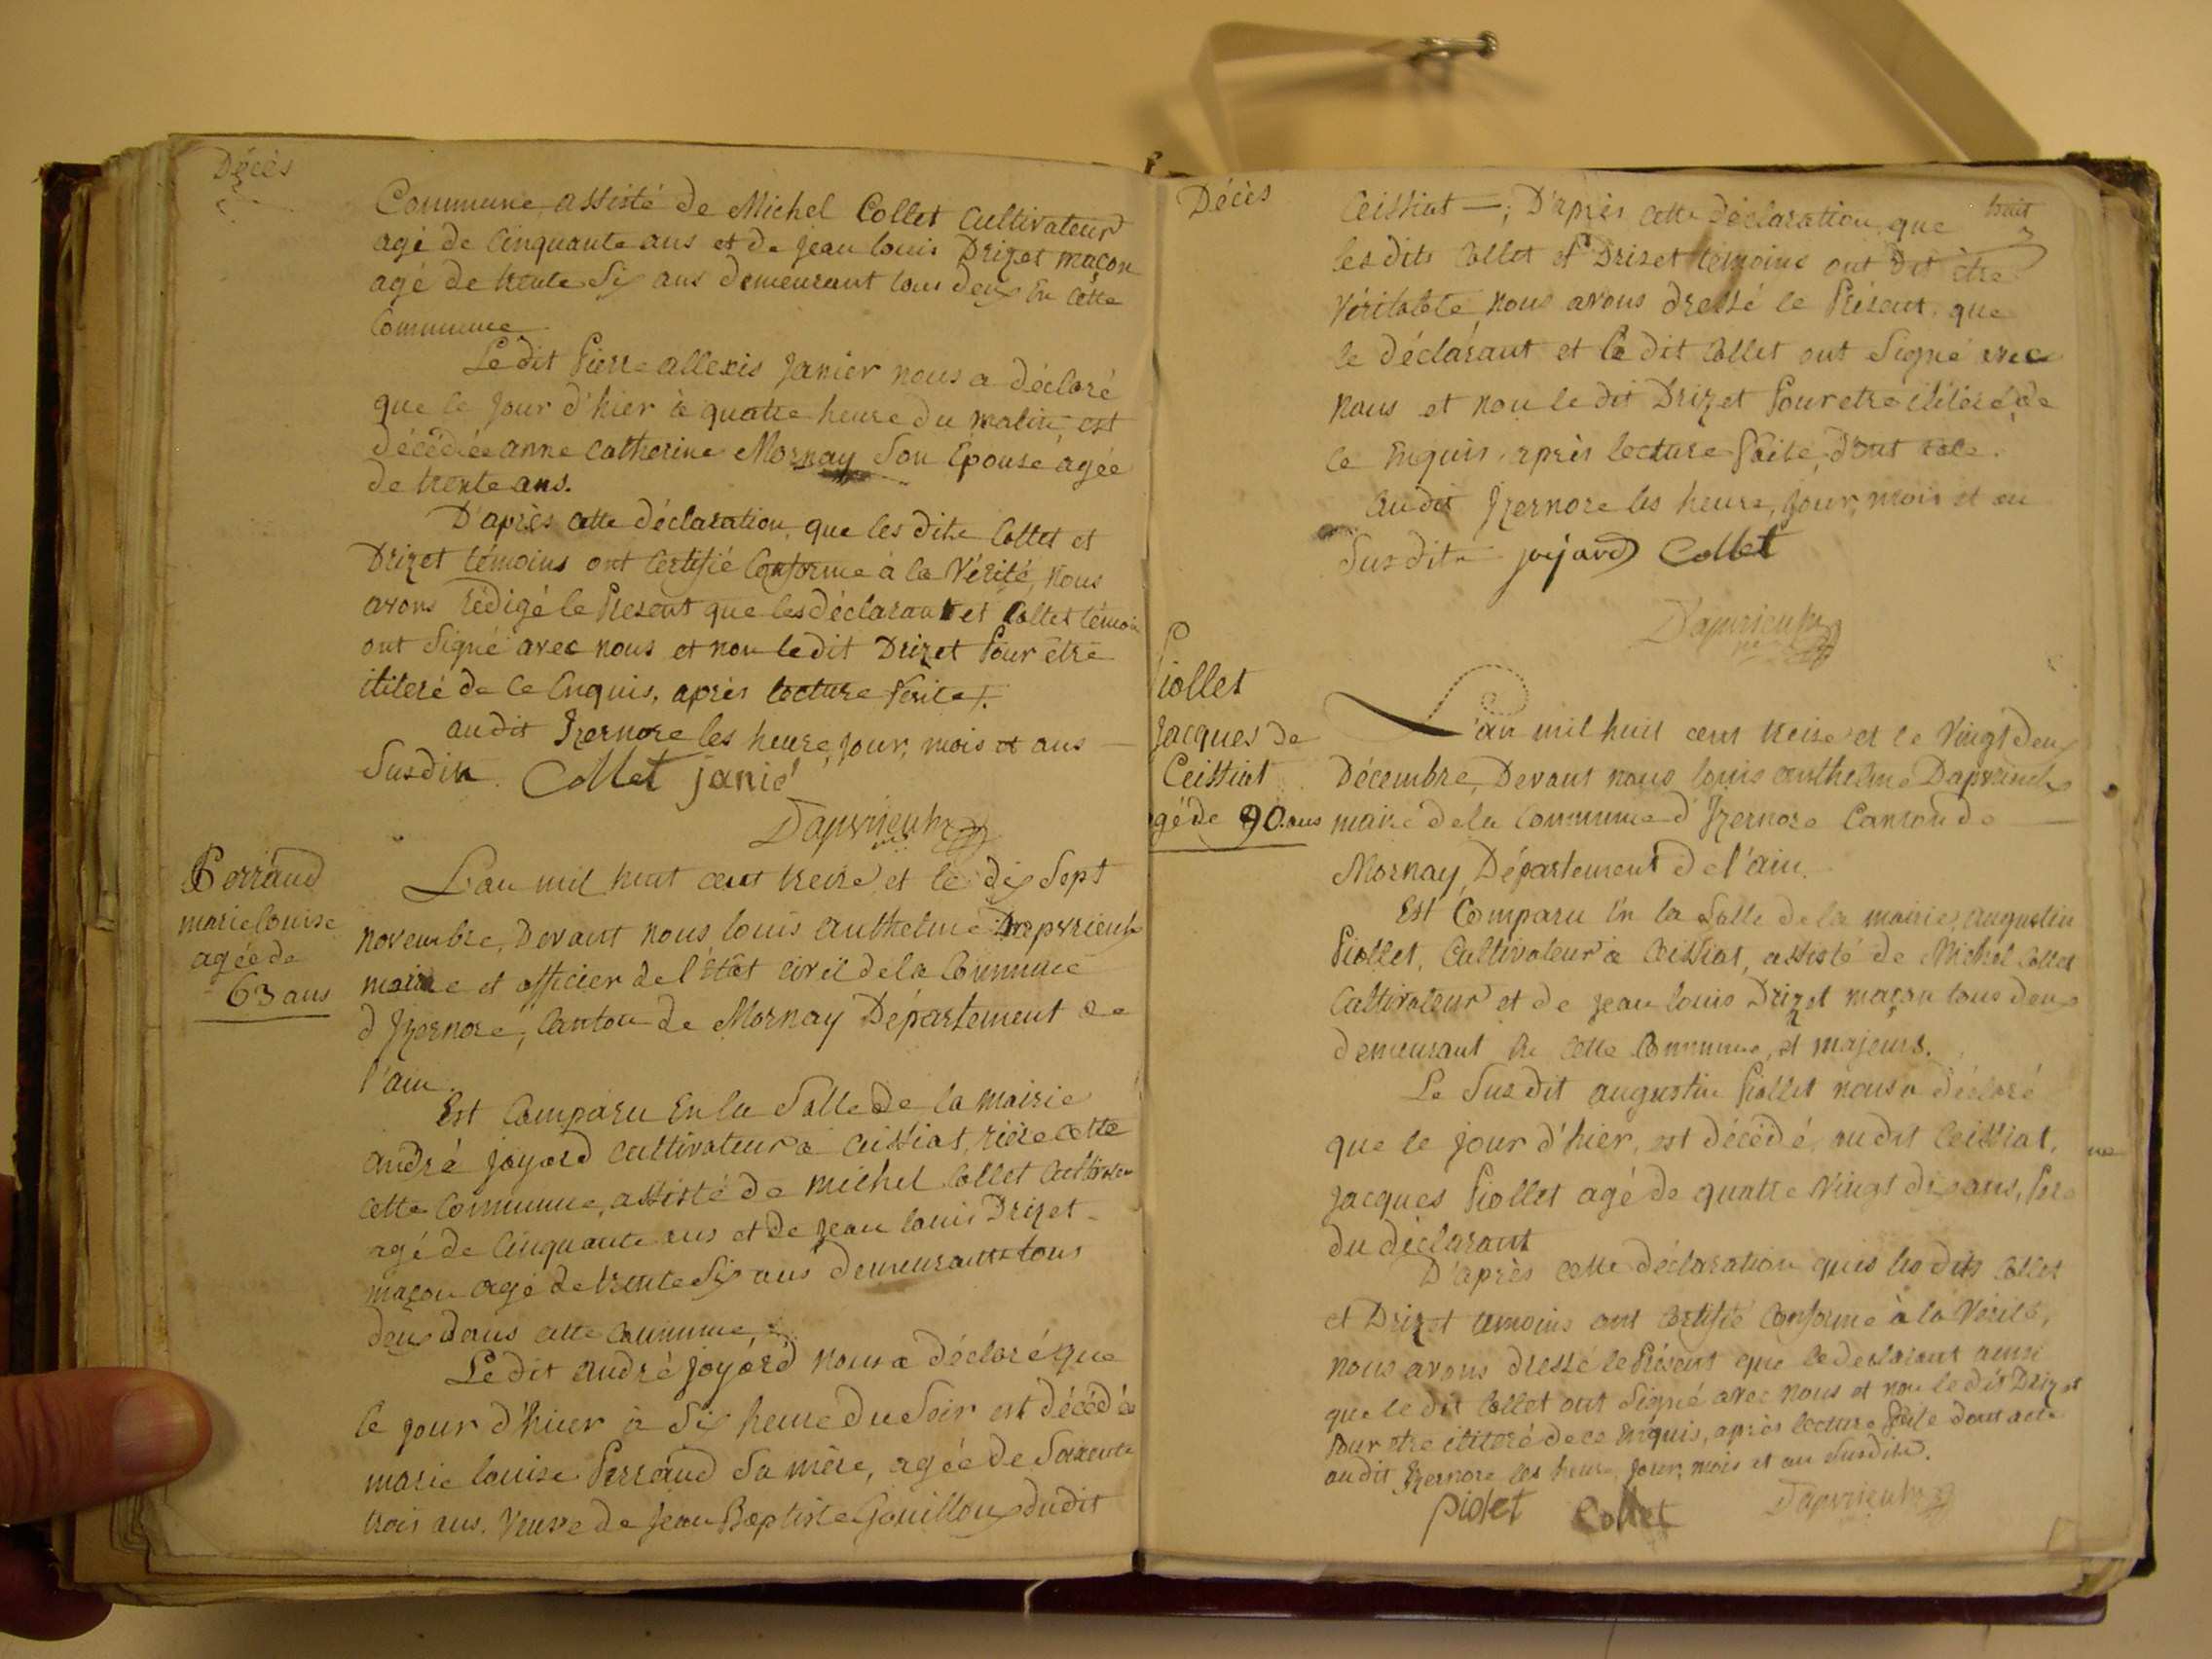 Décès
Commune, assisté de Michel Collet Cultivateur
agé de Cinquante ans et de jean louis Drizet maçon
agé de trente Six ans demeurant tous deux En cette
Commune
Le dit Pierre allexis Janier nous a déclaré
que le Jour d'hier à quatre heure du matin, est
décédée anne Catherine Mornay Son Epouse agée
de trente ans.
D'après cette déclaration, que les dits Collet et
Drizet témoins ont Certifié Conforme à la Vérité, nous
avons rédigé le Present que les déclarant et Collet témoin
ont Signé avec nous et non le dit Drizet Pour être
ititeré de ce Enquis, après lecture
audit Izernore les heure, Jour, mois et ans
Susdits Collet janié
Dapvrieulx
Perraud
marie louise
agée de
63 ans
L'an mil huit cent treize et le dix Sept
novembre, Devant nous louis anthelme Dapvrieulx
maire et officier de l'état civil de la Commune
d'Izernore, Canton de Mornay Département de
l'ain.
Est Comparu En la Salle de la mairie
andré joyard cultivateur à Ceissiat, rière cette
cette Commune, assisté de michel Collet Cultivateur
agé de Cinquante ans et de Jean louis Drizet
maçon agé de trente Six ans demeurant tous
deux dans cette Commune,
Le dit andré joyard nous a déclaré que
le jour d'hier à Six heure du Soir est décédée
marie louise Perraud Sa mère, agée de Soixente
trois ans. Veuve de Jean Baptiste Gouilloux dudit
Décès
huit
Ceissiat —; D'après cette déclaration que
les dits Collet et Drizet témoins ont dit être
Véritable nous avons dressé le Présent, que
le déclarant et le dit Collet ont Signé avec
nous et non le dit Drizet Pour etre ititéré, de
ce Enquis, après lecture Faite, Dont acte.
audit Izernore les heure, jour, mois et an
Susdits joyard Collet
Dapvrieulx
Piollet
Jacques de
Ceissiat
agé de 90. ans
L'an mil huit cent treise et le Vingt deux
Décembre, Devant nous louis anthelme Dapvrieulx
maire de la Commune d'Izernore Canton de
Mornay, Département de l'ain.
Est Comparu En la Salle de la mairie, augustin
Piollet, Cultivateur à Ceissiat, assisté de Michel Collet
Cultivateur et de jean louis Drizet maçon tous deux
demeurant En cette Commune, et majeurs.
Le Susdit augustin Piollet nous a déclaré
que le jour d'hier, est décédé, audit Ceissiat,
Jacques Piollet agé de quatre Vingt dix ans, Père
du déclarant
D'après cette déclaration que les dits Collet
et Drizet temoins ont Certifié Conforme à la Vérité,
nous avons dressé le Présent que le declarant ainsi
que le dit Collet ont Signé avec nous et non le dit Drizet
Pour etre ititeré de ce Enquis, après lecture Faite dont acte
audit Izernore les heure, jour, mois et an Susdits.
piolet Collet Dapvrieulx